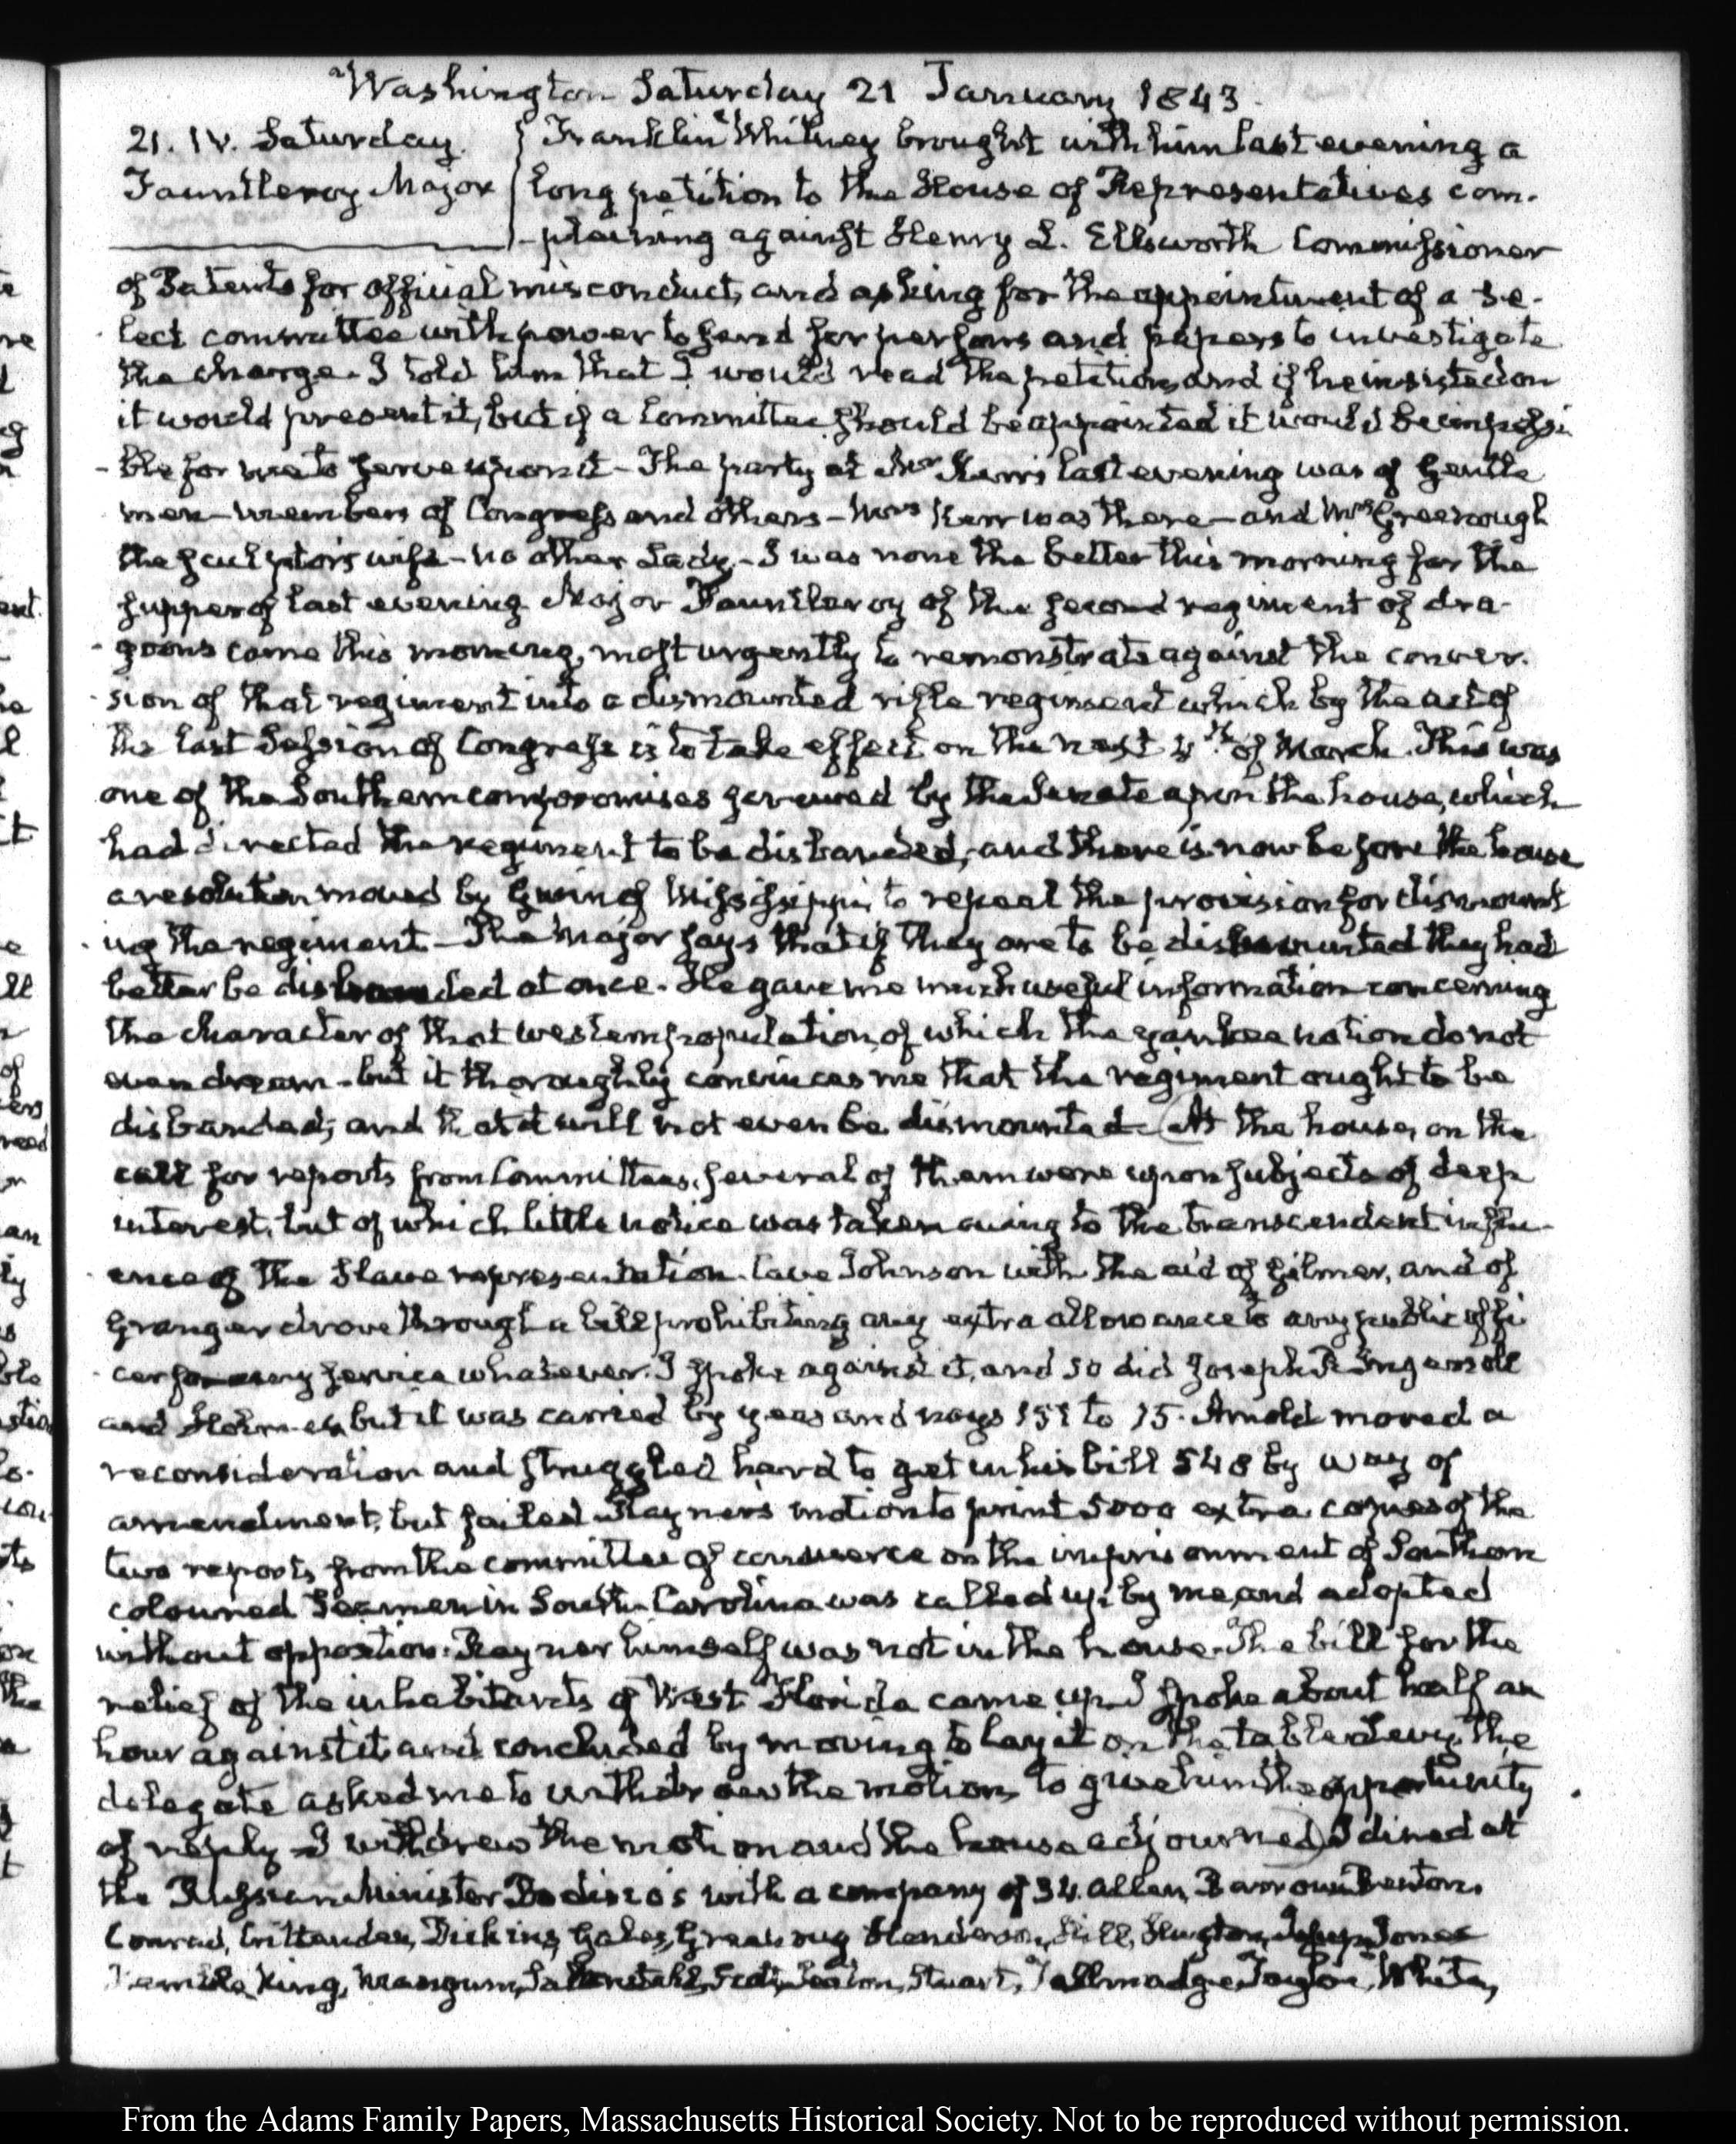 Washington Saturday 21 January 1843.
21. IV. Saturday.
Fauntleroy Major
Franklin Whitney brought with him last evening a
long petition to the House of Representatives com-
-plaining against Henry L. Ellsworth Commissioner
of Patents for official misconduct, and asking for the appointment of a se-
lect committee with power to send for persons and papers to investigate
the charge. I told him that I would read the petition, and if he insisted on
it would present it, but if a Committee should be appointed it would be impossi
-ble for me to serve upon it - The party at Mr Kerr's last evening was of Gentle
men - members of Congress and others - Mrs Kerr was there - and Mrs Greenough
the sculptor's wife - no other Lady. - I was none the better this morning for the
supper of last evening. Major Fauntleroy of the second regiment of dra-
-goons came this morning, most urgently to remonstrate against the conver-
-sion of that regiment into a dismounted rifle regiment which by the act of
the last Session of Congress is to take effect on the next 4th of March. This was
one of the Southern compromises by the Senate upon the house, which
had directed the regiment to be disbanded, and there is now before the house
a resolution moved by Gwin of Mississippi to repeal the provision for dismount
-ing the regiment - The Major says that if they are to be dismounted they had
better be disbanded at once. He gave me much useful information concerning
the character of that western population, of which the yankee nation do not
even dream - but it thoroughly convinces me that the regiment ought to be
disbanded, and that it will not even be dismounted - At the house, on the
call for reports from Committees, several of them were upon subjects of deep
interest, but of which little notice was taken owing to the transcendent influ-
-ence of the Slave representation. Cave Johnson with the aid of Gilmer, and of
Granger drove through a bill prohibiting any extra allowance to any public offi
-cer for any service whatever. I spoke against it, and so did Joseph R. Ingersoll
and Holmes, but it was carried by yeas and nays 151 to 15. Arnold moved a
reconsideration and struggled hard to get in his bill 548 by way of
amendment, but failed. Rayner's motion to print 5000 extra copies of the
two reports, from the committee of commerce on the imprisonment of Southern
coloured Seamen in South-Carolina was called up by me, and adopted
without opposition. Rayner himself was not in the house. The bill for the
relief of the inhabitants of West Florida came up. I spoke about half an
hour against it, and concluded by moving to lay it on the table. Levy, the
delegate asked me to withdraw the motion, to give him the opportunity
of reply - I withdrew the motion and the house adjourned) I dined at
the Russian Minister Bodisco's with a company of 34. Allen, Barrow, Benton,
Conrad, Crittenden, Dickins, Gales, Henderson, Jesup, Jones
King, Mangum, Saltonstall, Seaton, Stuart, Tallmadge, White,
From the Adams Family Papers, Massachusetts Historical Society. Not to be reproduced without permission.